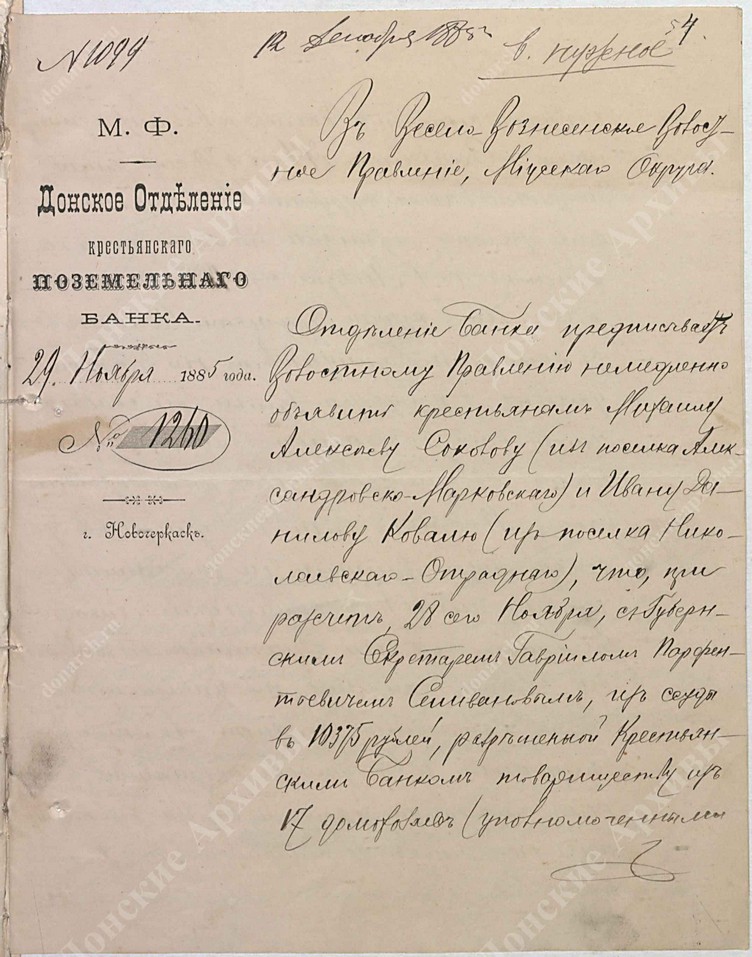 № 1099
12 Декабря 1885 г.
в. нужное
4.
М. Ф.
Донское Отдѣленіе
крестьянскаго
ПОЗЕМЕЛЬНАГО
БАНКА.
29 Ноября 1885 года.
№ 1260
г. Новочеркаскъ.
Въ Весело-Вознесенское Волост-
ное Правленіе, Міусскаго Округа.
Отдѣленіе Банка предписываетъ
Волостному Правленію немедленно
объявить крестьянамъ Михаилу
Алексѣеву Соколову (изъ поселка Алек-
сандровско-Марковскаго) и Ивану Да-
нилову Ковалю (изъ поселка Нико-
лаевскаго-Отраднаго), что, при
разсчетѣ, 28 сего Ноября, съ Губерн-
скимъ Секретаремъ Гавріиломъ Парфен-
тьевичемъ Селивановымъ, изъ ссуды
въ 10375 рублей, разрѣшенной Крестьян-
скимъ Банкомъ товариществу изъ
17 домохозяевъ (уполномоченными